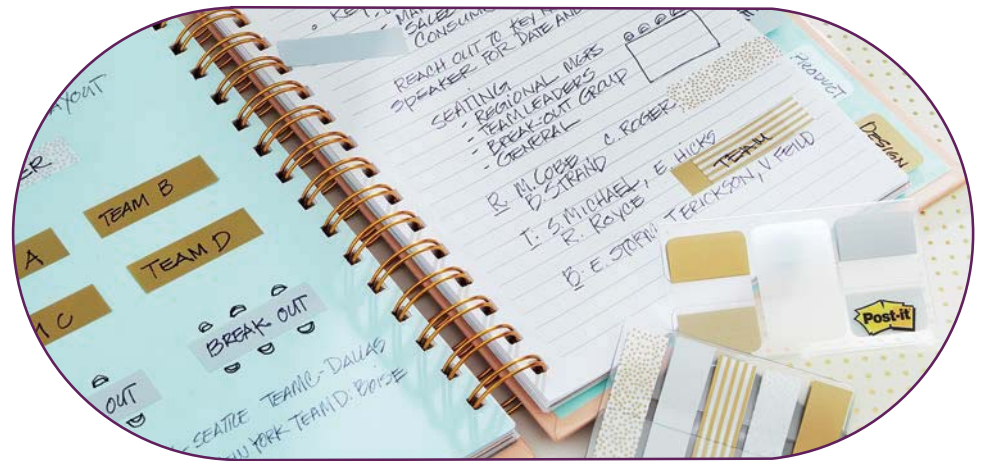 AYOUT
ER
TEAM B
A
TEAM D
C
BREAK OUT
OUT
SEATTLE TEAM C - DALLAS
YORK TEAM D: BOISE
SALES
CONSUM
REACH OUT TO KEY
SPEAKER FOR DATE AND
SEATING
- REGIONAL MGRS
- TEAM LEADERS
- BREAK-OUT GROUP
- GENERAL
R: M. COBE C. ROGER
D. STRAND
T: S. MICHAEL, E. HICKS
R. ROYCE
B: E. STORM, T ERICKSON, V FEILD
TEAM
PRODUCT
DESIGN
Post-it